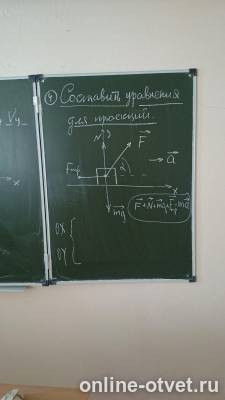 ④ Составить уравнения
для проекций.
N y F
a
Fтр α
x
mg F + N + mg + Fтр = ma
OX
OY
Vy
x
online-otvet.ru